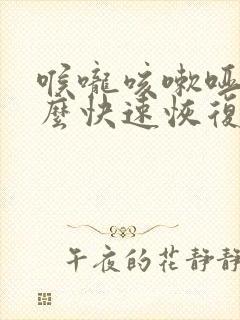 喉嚨咳嗽啞
麼快速恢復
午夜的花靜靜